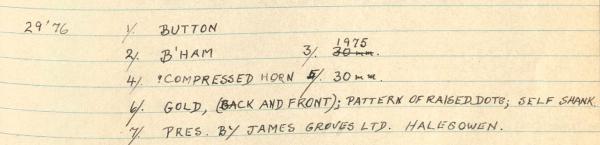 29'76 1/. BUTTON
2/. B'HAM 3/. 1975 30mm.
4/. ?COMPRESSED HORN 5/. 30mm.
6/. GOLD, (BACK AND FRONT); PATTERN OF RAISED DOTS; SELF SHANK.
7/. PRES. BY JAMES GROVES LTD. HALESOWEN.